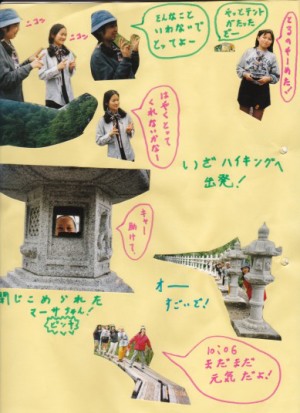 ニコッ
ニコッ
そんなこと
いわないで
とってよー
やっとテント
がたった
ぞー
とるのやーめた!
はやくとって
くれないかなー
いざハイキングへ
出発!
キャー
助けてー
閉じこめられた
マーサちゃん!
ピンチ
オー
すごいぞ!
10:06
まだまだ
元気だよ!